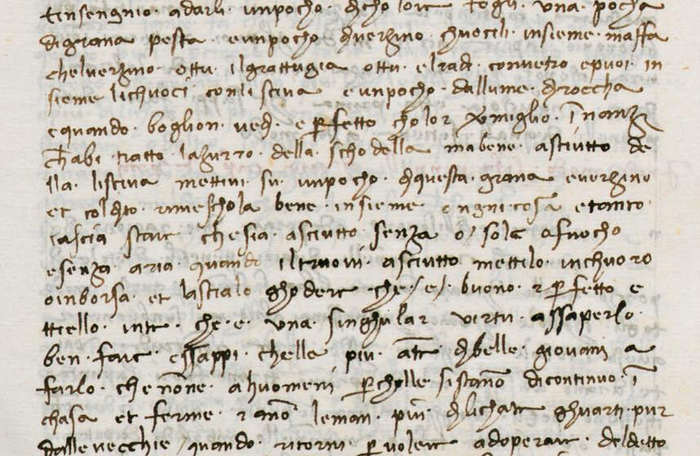 tinsengnio · adarli · unpocho · dcholore · togli · una · pocha
digrana pesta · eunpocho · dverzino · chuocili · insieme · maffa
chelverzino · ottu · ilgrattugia · ottu · elradi · convetro epuoi · in
sieme lichuoci · conlisciva · eunpocho · dallume · droccha
equando · boglion · vedj · eꝑfetto · cholor · vmiglio · Inanzi
chabi · tratto · lazurro · della · schodella · mabene · asciutto · de
lla · lisciva · mettivi · su · unpocho · dquesta · grana · everzino
et · coldito · rimeschola · bene · insieme · ongnicosa · etanto ·
lascia · stare · chesia · asciutto senza · o / sole · afuocho
esenza · aria · quando · iltruovi · asciutto mettilo · inchuoro
oinborsa · et lascialo · ghodere · che / e / · buono · ꝛꝑfetto e
ttiello · inte · che · e · una · singhular · virtu · assaperlo ·
ben · fare · essappi · chelle · piu · arte · dbelle · giovani · a
farlo · chenōne · ahuomeni · ꝑchelle · sistanō · dicontinuo · ī
chasa · et ferme · ꝛanō · lemani · piu · dlichate · ghuarti · pur
dallevecchie / quando · ritorni · ꝑvolere · adoperare · deldetto